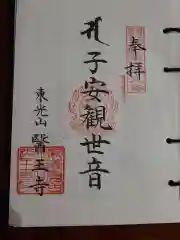 奉拝
子安観世音
東光山
醫王寺